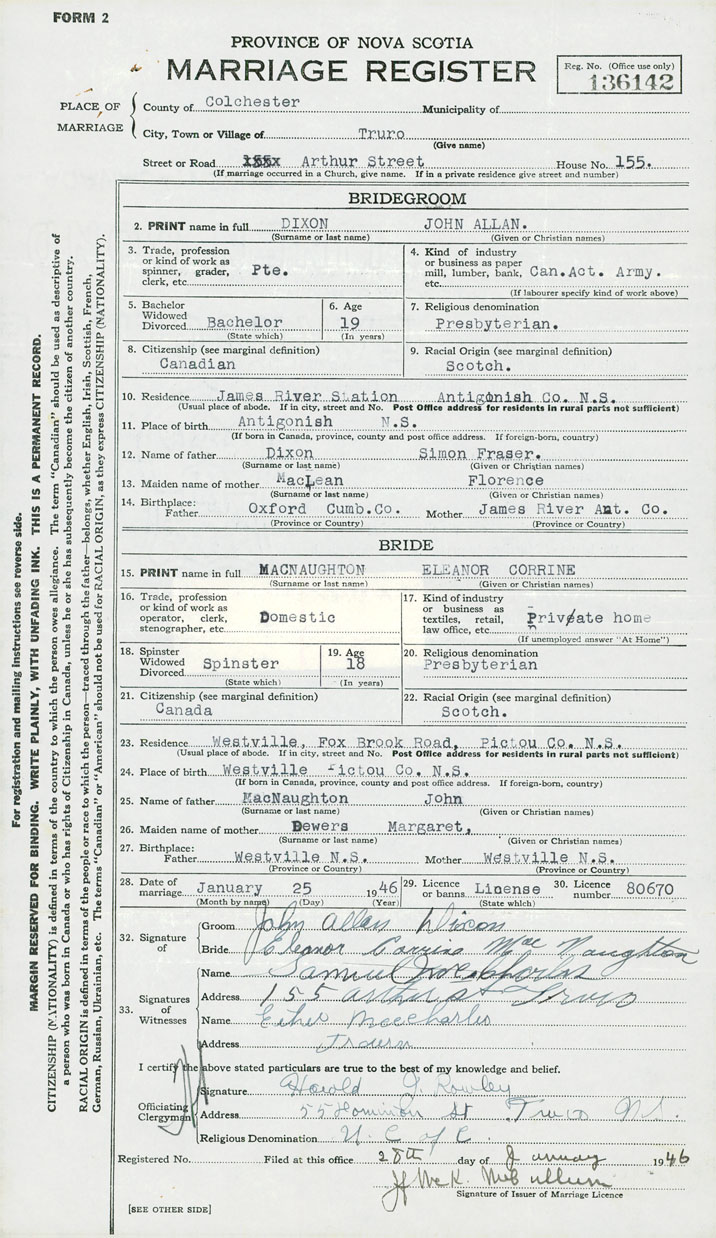 FORM 2
PROVINCE OF NOVA SCOTIA
MARRIAGE REGISTER
Reg. No. (Office use only)
136142
PLACE OF MARRIAGE
County of Colchester Municipality of
City, Town or Village of Truro
(Give name)
Street or Road Arthur Street House No. 155.
(If marriage occurred in a Church, give name. If in a private residence give street and number)
BRIDEGROOM
2. PRINT name in full DIXON JOHN ALLAN.
(Surname or last name) (Given or Christian names)
3. Trade, profession or kind of work as spinner, grader, clerk, etc. Pte.
4. Kind of industry or business as paper mill, lumber, bank, etc. Can.Act. Army.
(If labourer specify kind of work above)
5. Bachelor Widowed Divorced Bachelor
(State which)
6. Age 19
(In years)
7. Religious denomination
Presbyterian.
8. Citizenship (see marginal definition)
Canadian
9. Racial Origin (see marginal definition)
Scotch.
10. Residence James River Station Antigonish Co. N.S.
(Usual place of abode. If in city, street and No. Post Office address for residents in rural parts not sufficient)
11. Place of birth Antigonish N.S.
(If born in Canada, province, county and post office address. If foreign-born, country)
12. Name of father Dixon Simon Fraser.
(Surname or last name) (Given or Christian names)
13. Maiden name of mother MacLean Florence
(Surname or last name) (Given or Christian names)
14. Birthplace:
Father Oxford Cumb.Co. Mother James River Ant. Co.
(Province or Country) (Province or Country)
BRIDE
15. PRINT name in full MACNAUGHTON ELEANOR CORRINE
(Surname or last name) (Given or Christian names)
16. Trade, profession or kind of work as operator, clerk, stenographer, etc. Domestic
17. Kind of industry or business as textiles, retail, law office, etc. Private home
(If unemployed answer "At Home")
18. Spinster Widowed Divorced Spinster
(State which)
19. Age 18
(In years)
20. Religious denomination
Presbyterian
21. Citizenship (see marginal definition)
Canada
22. Racial Origin (see marginal definition)
Scotch.
23. Residence Westville, Fox Brook Road, Pictou Co. N.S.
(Usual place of abode. If in city, street and No. Post Office address for residents in rural parts not sufficient)
24. Place of birth Westville Pictou Co. N.S.
(If born in Canada, province, county and post office address. If foreign-born, country)
25. Name of father MacNaughton John
(Surname or last name) (Given or Christian names)
26. Maiden name of mother Dewers Margaret,
(Surname or last name) (Given or Christian names)
27. Birthplace:
Father Westville N.S. Mother Westville N.S.
(Province or Country) (Province or Country)
28. Date of marriage January 25 1946
(Month by name) (Day) (Year)
29. Licence or banns License
(State which)
30. Licence number 80670
32. Signature of
Groom John Allan Dixon
Bride Eleanor Corrine MacNaughton
33. Signatures of Witnesses
Name Samuel
Address 155 Arthur St Truro
Name MacCharles
Address Truro
I certify the above stated particulars are true to the best of my knowledge and belief.
Officiating Clergyman
Signature Harold
Address 55 Dominion St Truro N.S.
Religious Denomination U. C of C.
Registered No. Filed at this office 28th day of January 1946
Signature of Issuer of Marriage Licence
[SEE OTHER SIDE]
For registration and mailing instructions see reverse side.
MARGIN RESERVED FOR BINDING. WRITE PLAINLY, WITH UNFADING INK. THIS IS A PERMANENT RECORD.
CITIZENSHIP (NATIONALITY) is defined in terms of the country to which the person owes allegiance. The term "Canadian" should be used as descriptive of
a person who was born in Canada or who has rights of Citizenship in Canada, unless he or she has subsequently become the citizen of another country.
RACIAL ORIGIN is defined in terms of the people or race to which the person—traced through the father—belongs, whether English, Irish, Scottish, French,
German, Russian, Ukrainian, etc. The terms "Canadian" or "American" should not be used for RACIAL ORIGIN, as they express CITIZENSHIP (NATIONALITY).